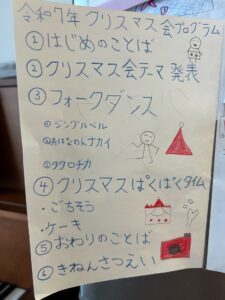 令和7年クリスマス会プログラム
①はじめのことば
②クリスマス会テーマ発表
③フォークダンス
①ジングルベル
②おはなのトナカイ
③タタロチカ
④クリスマスぱくぱくタイム
・ごちそう
・ケーキ
⑤おわりのことば
⑥きねんさつえい